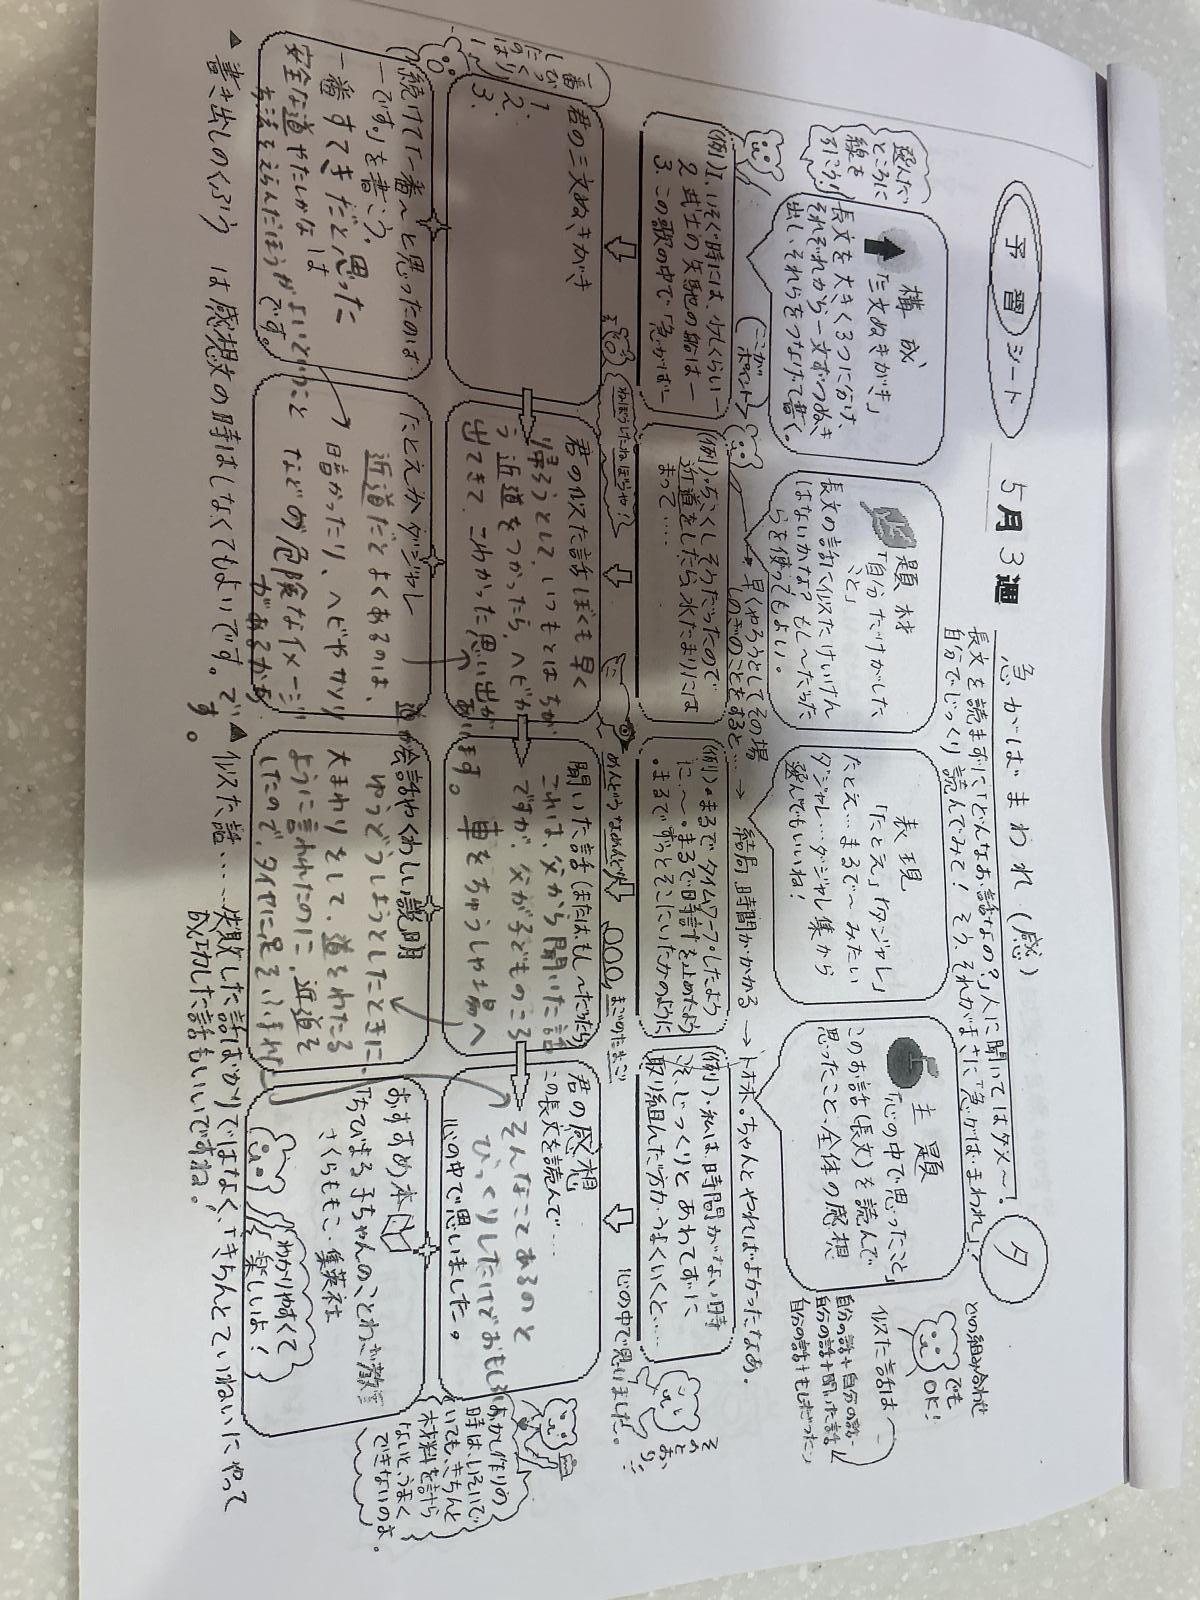 予習シート
5月3週
急がばまわれ(感)
タ
長文を読まずに「どんなお話なの?」人に聞いてはダメ〜!
自分でじっくり読んでみて!そう、それがまさに「急がば・まわれ」?
選んだ
ところに
線を
引こう!
構成
「三文ぬきがき」
長文を大きく3つに分け、
それぞれから一文ずつぬき
出し、それらをつなげて書く。
題材
「自分だけがした
こと」
長文の話で似たけいけん
はないかな?もし〜だった
らを使ってもよい。
表現
「たとえ」「ダジャレ」
たとえ…まるで〜みたい
ダジャレ…ダジャレ集から
選んでもいいね!
主題
「心の中で思ったこと」
このお話(長文)を読んで
思ったこと、全体の感想
どの組み合わせ
でも
OK!
似た話は
自分の話+自分の話
自分の話+聞いた話
自分の話+もしだったら
ここが
ポイント
→早くやろうとしてその場
しのぎのことをすると…→
結局、時間がかかる→
トホホ。ちゃんとやればよかったなあ。
(例)1、いそぐ時には、少しくらい―
2、武士の矢馳の船は―
3、この歌の中で、「急がば―
(例)・ちこくしそうだったので
近道をしたら水たまりには
まって…
(例)。まるでタイムワープしたよう
に、〜。まるで時計を止めたよう
。まるでずっとそこにいたかのように
(例)・私は、時間がない時
こそ、じっくりとあわてずに
取り組んだ方がうまくいくと…
ねぼうしたねぼうや?
めんどうなめんどり
まごのたまご
心の中で思いました。
そのとおり!!
君の三文ぬきがき
1、
2、
3、
君の似た話 ぼくも早く
帰ろうとして、いつもとはちが
う近道をつかったら、ヘビが
出てきて、こわかった思い出が
あります。
聞いた話(またはもし〜だったら
これは、父から聞いた話
ですが、父が子どものころ
車をちゅうしゃ場へ
君の感想
この長文を読んで…
そんなことあるのと
びっくりしたけどおもし
心の中で思いました。
一番
びっくり
したのは〜
続けて「一番〜と思ったのは
―です」を書こう。
一番すてきだと思った
のは
安全な道やたしかな
方法をえらんだほうがよいということ
です。
たとえかダジャレ
近道だとよくあるのは、
暗かったり、ヘビやカソリ
などの危険なイメージ
があるから
道
会話やくわしい説明
ゆうどうしようとしたときに、
大まわりをして、道をわたる
ように言われたのに、近道を
したので、タイヤに足をひかれ
おすすめ本
「ちびまる子ちゃんのことわざ教室
さくらももこ・集英社
わかりやすくて
楽しいよ!
おかし作りの
時は、いそいで
いても、きちんと
材料を計ら
ないと、うまく
できないのよ。
▲書き出しのくふう は感想文の時はしなくてもよいです。
▲似た話……失敗した話ばかりではなく、「きちんとていねいにやって
成功した話もいいですね。